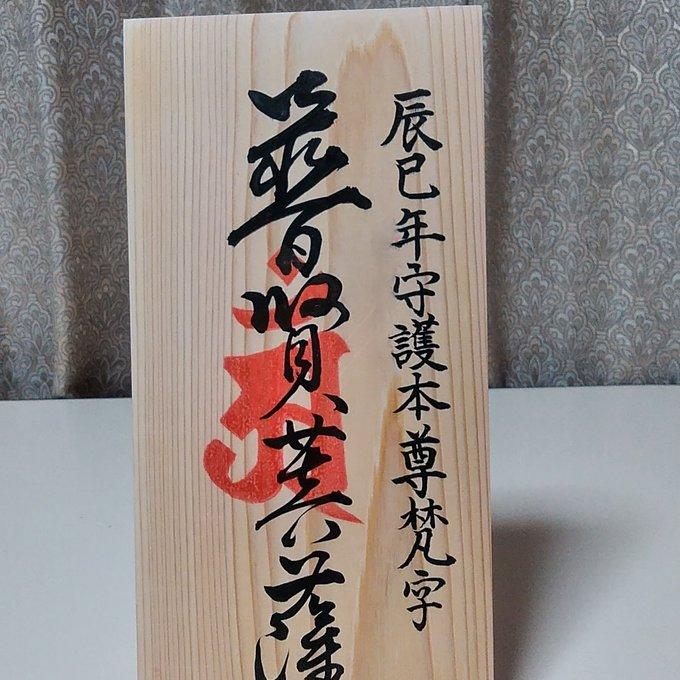 辰巳年守護本尊梵字
普賢菩薩